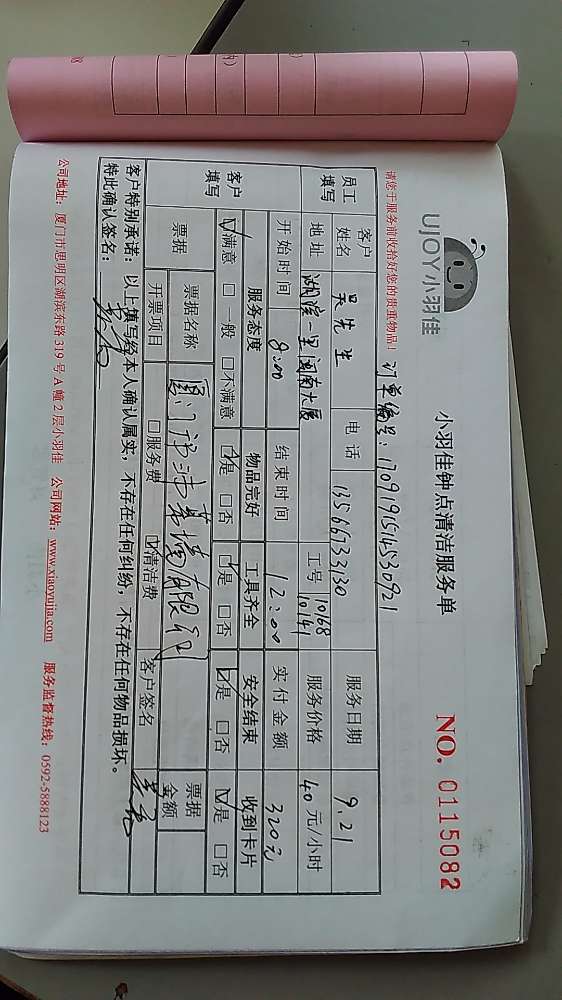 UJOY小羽佳
小羽佳钟点清洁服务单
NO. 0115082
请您于服务前收拾好您的贵重物品!
订单编号: 1709191514530921
员工填写
客户姓名
吴先生
电话
13566733130
服务日期
9.21
地址
湖滨
闽南大厦
工号
10168
10141
服务价格
40元/小时
开始时间
8:00
结束时间
12:00
实付金额
320元
客户填写
服务态度
物品完好
工具齐全
安全结束
收到卡片
☑满意 □一般 □不满意
☑是 □否
☑是 □否
☑是 □否
☑是 □否
票据
票据名称
厦门
有限公司
票据金额
开票项目
□服务费
☑清洁费
客户签名
客户特别承诺:以上填写经本人确认属实,不存在任何纠纷,不存在任何物品损坏。
特此确认签名:
公司地址:厦门市思明区湖滨东路319号A幢2层小羽佳 公司网站:www.xiaoyujia.com 服务监督热线:0592-5888123